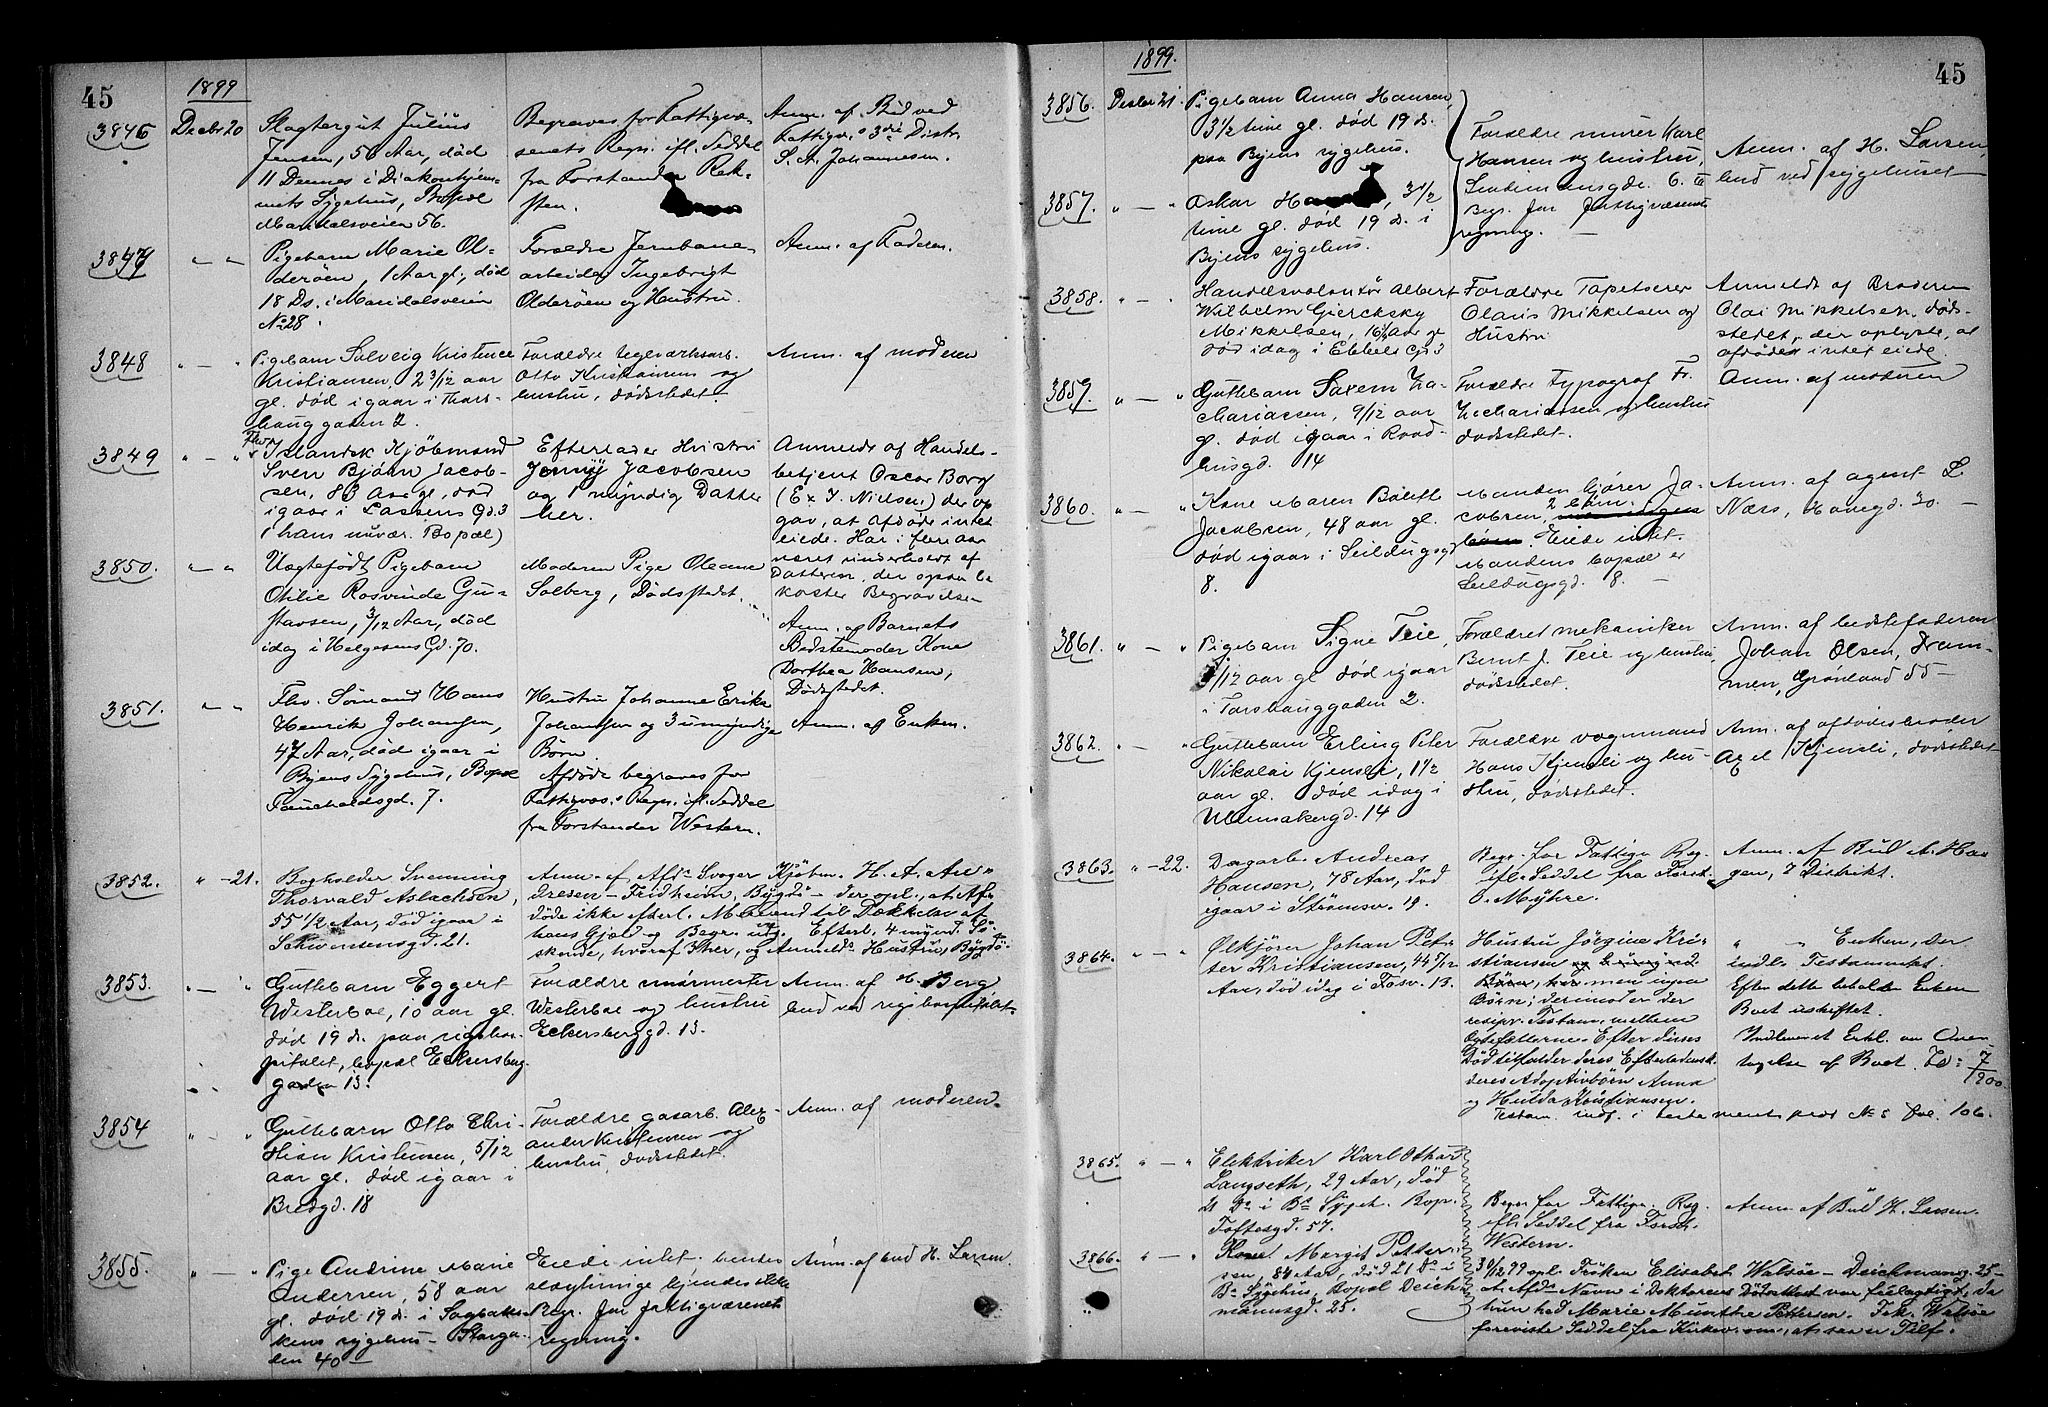 45
1899
3846
Decbr 20
Slagtergut Julius
Jensen, 56 Aar, død
11 Dennes i Diakonhjem-
mets Sygehus, Bopæl
Maridalsveien 56.
Begraves for Fattigvæ-
senets Regn. ifl. Seddel
fra Forstander Rek-
sten.
Anm. af Bud ved
Fattigv.s 3die Distr.
S. A. Johannesen.
3847
" — "
Pigebarn Marie Ol-
derøen, 1 Aar gl., død
18 Ds. i Maridalsveien
No 28.
Forældre Jernbane-
arbeider Ingebrigt
Olderøen og Hustru.
Anm. af Faderen.
3848
" — "
Pigebarn Solveig Kristence
Kristiansen, 2 3/12 aar
gl. død igaar i Thors-
hauggaden 2.
Forældre teglværksarb.
Otto Kristiansen og
hustru, dødsstedet.
Anm. af moderen
3849
" — "
Fhv. Islandsk Kjöbmand
Sven Björn Jacob-
sen, 83 Aar gl., død
igaar i Lassons Gd. 3
(hans nuvær. Bopæl)
Efterlader Hustru
Jenny Jacobsen
og 1 myndig Datter
her.
Anmeldt af Handels-
betjent Oscar Borg
(Ex J. Nielsen) der op
gav, at Afdøde intet
eiede. Har i flere aar
været underholdt af
Datteren, der ogsaa be
koster Begravelsen
3850.
" — "
Uægtefødt Pigebarn
Otilie Rosvinde Gu-
stavsen, 3/12 Aar, død
idag i Helgesens Gd. 70.
Moderen Pige Oleane
Solberg, Dødsstedet.
Anm. af Barnets
Bedstemoder Kone
Dorthea Hansen,
Dødsstedet.
3851.
" — "
Fhv. Sömand Hans
Henrik Johansen,
47 Aar, død igaar i
Byens Sygehus, Bopæl
Fauchaldsgd. 7.
Hustru Johanne Erika
Johansen og 3 umyndige
Børn.
Afdøde begraves for
Fattigvæs.s Regn. ifl. Seddel
fra Forstander Western.
Anm. af Enken.
3852.
" — 21.
Bogholder Svenning
Thorvald Aslachsen,
55 1/2 Aar, død igaar i
Schwensensgd. 21.
Anm. af, Afd.s Svoger Kjöbm. H. A. An-
dresen — Fredheim, Bygdö — der opl., at Af-
døde ikke efterl. Mere end til Dækkelse af
hans Gjæld og Begr. udg. Efterl. 4 mynd. Sö-
skende, hvoraf 3 her, og Anmeld.s Hustru, Bygdö.
3853.
" — "
Guttebarn Eggert
Westerboe, 10 aar gl.
død 19 ds. paa rigshos-
pitalet, bopæl Eckersberg-
gaden 13.
Forældre murmester
Westerboe og hustru
Eckersberggd. 13.
Anm. af H. Berg
bud ved rigshospitalet.
3854
" — "
Guttebarn Otto Chri-
stian Kristensen, 5/12
aar gl. død igaar i
Bredgd. 18
Forældre gasarb. Alex-
ander Kristensen og
hustru, dødsstedet.
Anm. af moderen.
3855.
" — "
Pige Andrine Marie
Andersen, 58 aar
gl. død 19 ds. i
sygehus — Storga-
den 40
Eiede intet.
slægtninge kjendes ikke
Begr. for fattigvæsenets
regning.
Anm. af bud H. Larsen.
45
1899.
3856.
Decbr 21.
Pigebarn Anna Hansen,
3 1/2 time gl. død 19 ds.
paa Byens sygehus.
Forældre murer Karl
Hansen og hustru,
6. II
Begr. for fattigvæsenets
regning. —
Anm. af H. Larsen,
bud ved sygehuset
3857.
" — "
Oskar, 3 1/2
time gl. død 19 ds. i
Byens sygehus.
3858.
" — "
Handelsvolontör Albert
Wilhelm Giercksky
Mikkelsen, 16 1/2 Aar gl
død idag i Ebbels Gd. 3
Forældre Tapetserer
Olaus Mikkelsen og
Hustru
Anmeldt af Broderen
Olai Mikkelsen, døds-
stedet, der oplyste, at
afdøde intet eiede.
3859.
" — "
Guttebarn Saxem Za-
chariassen, 9/12 aar
gl. død igaar i Raad-
husgd. 14
Forældre Typograf Fr.
Zachariassen og hustru
dødsstedet.
Anm. af moderen
3860.
" — "
Kone Maren Bolett
Jacobsen, 48 aar gl.
død igaar i Seildugsgd
8.
Manden kjører Ja-
cobsen, 2 børn.
Eiede intet.
Mandens bopæl er
Seildugsgd. 8. —
Anm. af agent L.
Næss, Hausgd. 30. —
3861.
" — "
Pigebarn Signe Teie,
/12 aar gl død igaar
i Torshauggaden 2.
Forældre mekaniker
Bernt J. Teie og hustru,
dødsstedet.
Anm. af bedstefaderen
Johan Olsen, Dram-
men, Grönland 55 —
3862.
" — "
Guttebarn Erling Peter
Nikolai Kjensli, 1 1/2
aar gl. død idag i
Ullensakergd. 14
Forældre vognmand
Hans Kjensli og hu-
stru, dødsstedet.
Anm. af afdødes broder
Axel Kjensli, dødsstedet
3863.
" — 22.
Dagarb. Andreas
Hansen, 78 Aar, død
igaar i Strömsv. 19.
Begr. for Fattigv. Reg.
ifl. Seddel fra Forst.
O. Myhre.
Anm. af Bud A. Hau
gen, 7 Distrikt.
3864.
" — "
Ølkjörer Johan Pet-
ter Kristiansen, 44 5/12
Aar, død idag i Fossv. 13.
Hustru Jörgine Kri-
stiansen
men ingen
Börn; derimod er der
resipr. Testam. mellem
Ægtefællerne. Efter dennes
Död tilfalder deres Efterladensk.
deres Adoptivbörn Anna
og Hulda Kristiansen.
Testam. indf. i testamentsprot No 5 Fol. 106.
" " Enken, der
indl. Testamentet.
Efter dette beholder Enken
Boet uskiftet.
Indleveret Erkl. om Over-
tagelse af Boet. Io: 7/1900.
3865.
" — "
Elektriker Karl Othar
Langseth, 29 Aar, død
21 Ds i Bs Sygeh. Bop.
Toftesgd. 57.
Begr. for Fattigv. Reg.
ifl. Seddel fra Forst.
Western.
Anm. af Bud H. Larsen.
3866.
" — "
Kone Margit Petter-
sen, 84 Aar, død 21 Ds i
Bs Sygehus, Bopæl Deich-
mannsgd. 25.
30/12 99 opl. Frøken Elisabet Walsøe — Deichmansg. 25 —
at Afd.s Navn i Doktorens Dödsattest var feilagtigt, da
hun hed Marie Munthe Pettersen. Frk. Walsøe
foreviste Seddel fra Kirkev. om, at saa er Tilf.